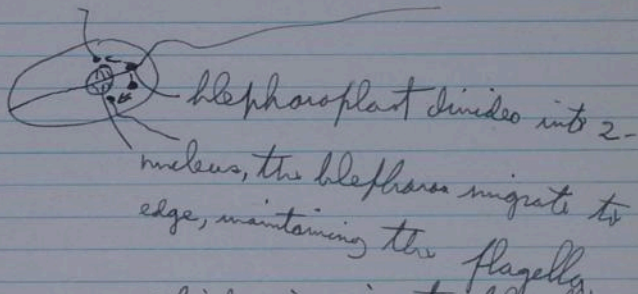 blepharoplast divides into 2-
nucleus, the blepharos migrate to
edge, maintaining the flagella.